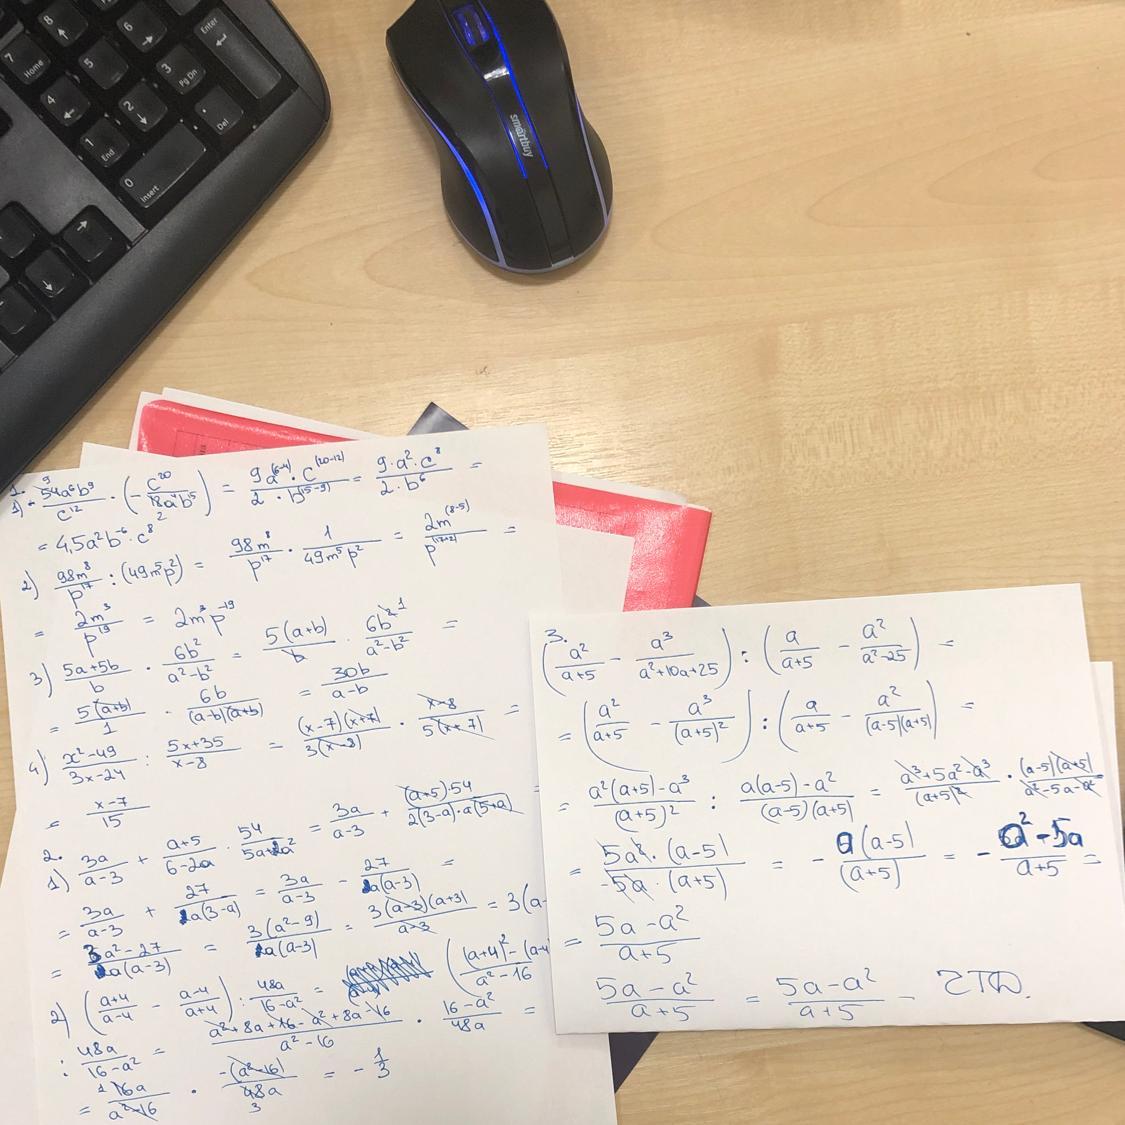 7 Home
8
Enter
4
5
6
1 End
2
3 Pg Dn
0 Insert
. Del
smartbuy
1.
1) - 54a⁶b⁹/c¹² · (- c²⁰/18a⁴b⁵) = 9a⁽⁶⁻⁴⁾ · c⁽²⁰⁻¹²⁾/2 · b⁽¹⁵⁻⁹⁾ = 9·a²·c⁸/2·b⁶ =
= 4,5a²b⁻⁶·c⁸
2) 98m⁸/p¹⁷ : (49m⁵p²) = 98m⁸/p¹⁷ · 1/49m⁵p² = 2m⁽⁸⁻⁵⁾/p⁽¹⁷⁺²⁾ =
= 2m³/p¹⁹ = 2m³p⁻¹⁹
3) 5a+5b/b · 6b²/a²-b² = 5(a+b)/b · 6b²/a²-b² =
= 5(a+b)/1 · 6b/(a-b)(a+b) = 30b/a-b
4) x²-49/3x-24 : 5x+35/x-8 = (x-7)(x+7)/3(x-8) · x-8/5(x+7) =
= x-7/15
2.
1) 3a/a-3 + a+5/6-2a · 54/5a+a² = 3a/a-3 + (a+5)·54/2(3-a)·a(5+a) =
= 3a/a-3 + 27/a(3-a) = 3a/a-3 - 27/a(a-3) =
= 3a²-27/a(a-3) = 3(a²-9)/a(a-3) = 3(a-3)(a+3)/a-3 = 3(a-
2) (a+4/a-4 - a-4/a+4) : 48a/16-a² = ((a+4)²-(a-4/a²-16
: 48a/16-a² = a²+8a+16-a²+8a-16/a²-16 · 16-a²/48a =
= 16a/a²-16 · -(a²-16)/48a = - 1/3
3.
(a²/a+5 - a³/a²+10a+25) : (a/a+5 - a²/a²-25) =
= (a²/a+5 - a³/(a+5)²) : (a/a+5 - a²/(a-5)(a+5)) =
= a²(a+5)-a³/(a+5)² : a(a-5)-a²/(a-5)(a+5) = a³+5a²-a³/(a+5)² · (a-5)(a+5)/a²-5a-a²
= 5a²·(a-5)/-5a·(a+5) = - a(a-5)/(a+5) = - a²-5a/a+5 =
= 5a-a²/a+5
5a-a²/a+5 = 5a-a²/a+5 - ЧТД.